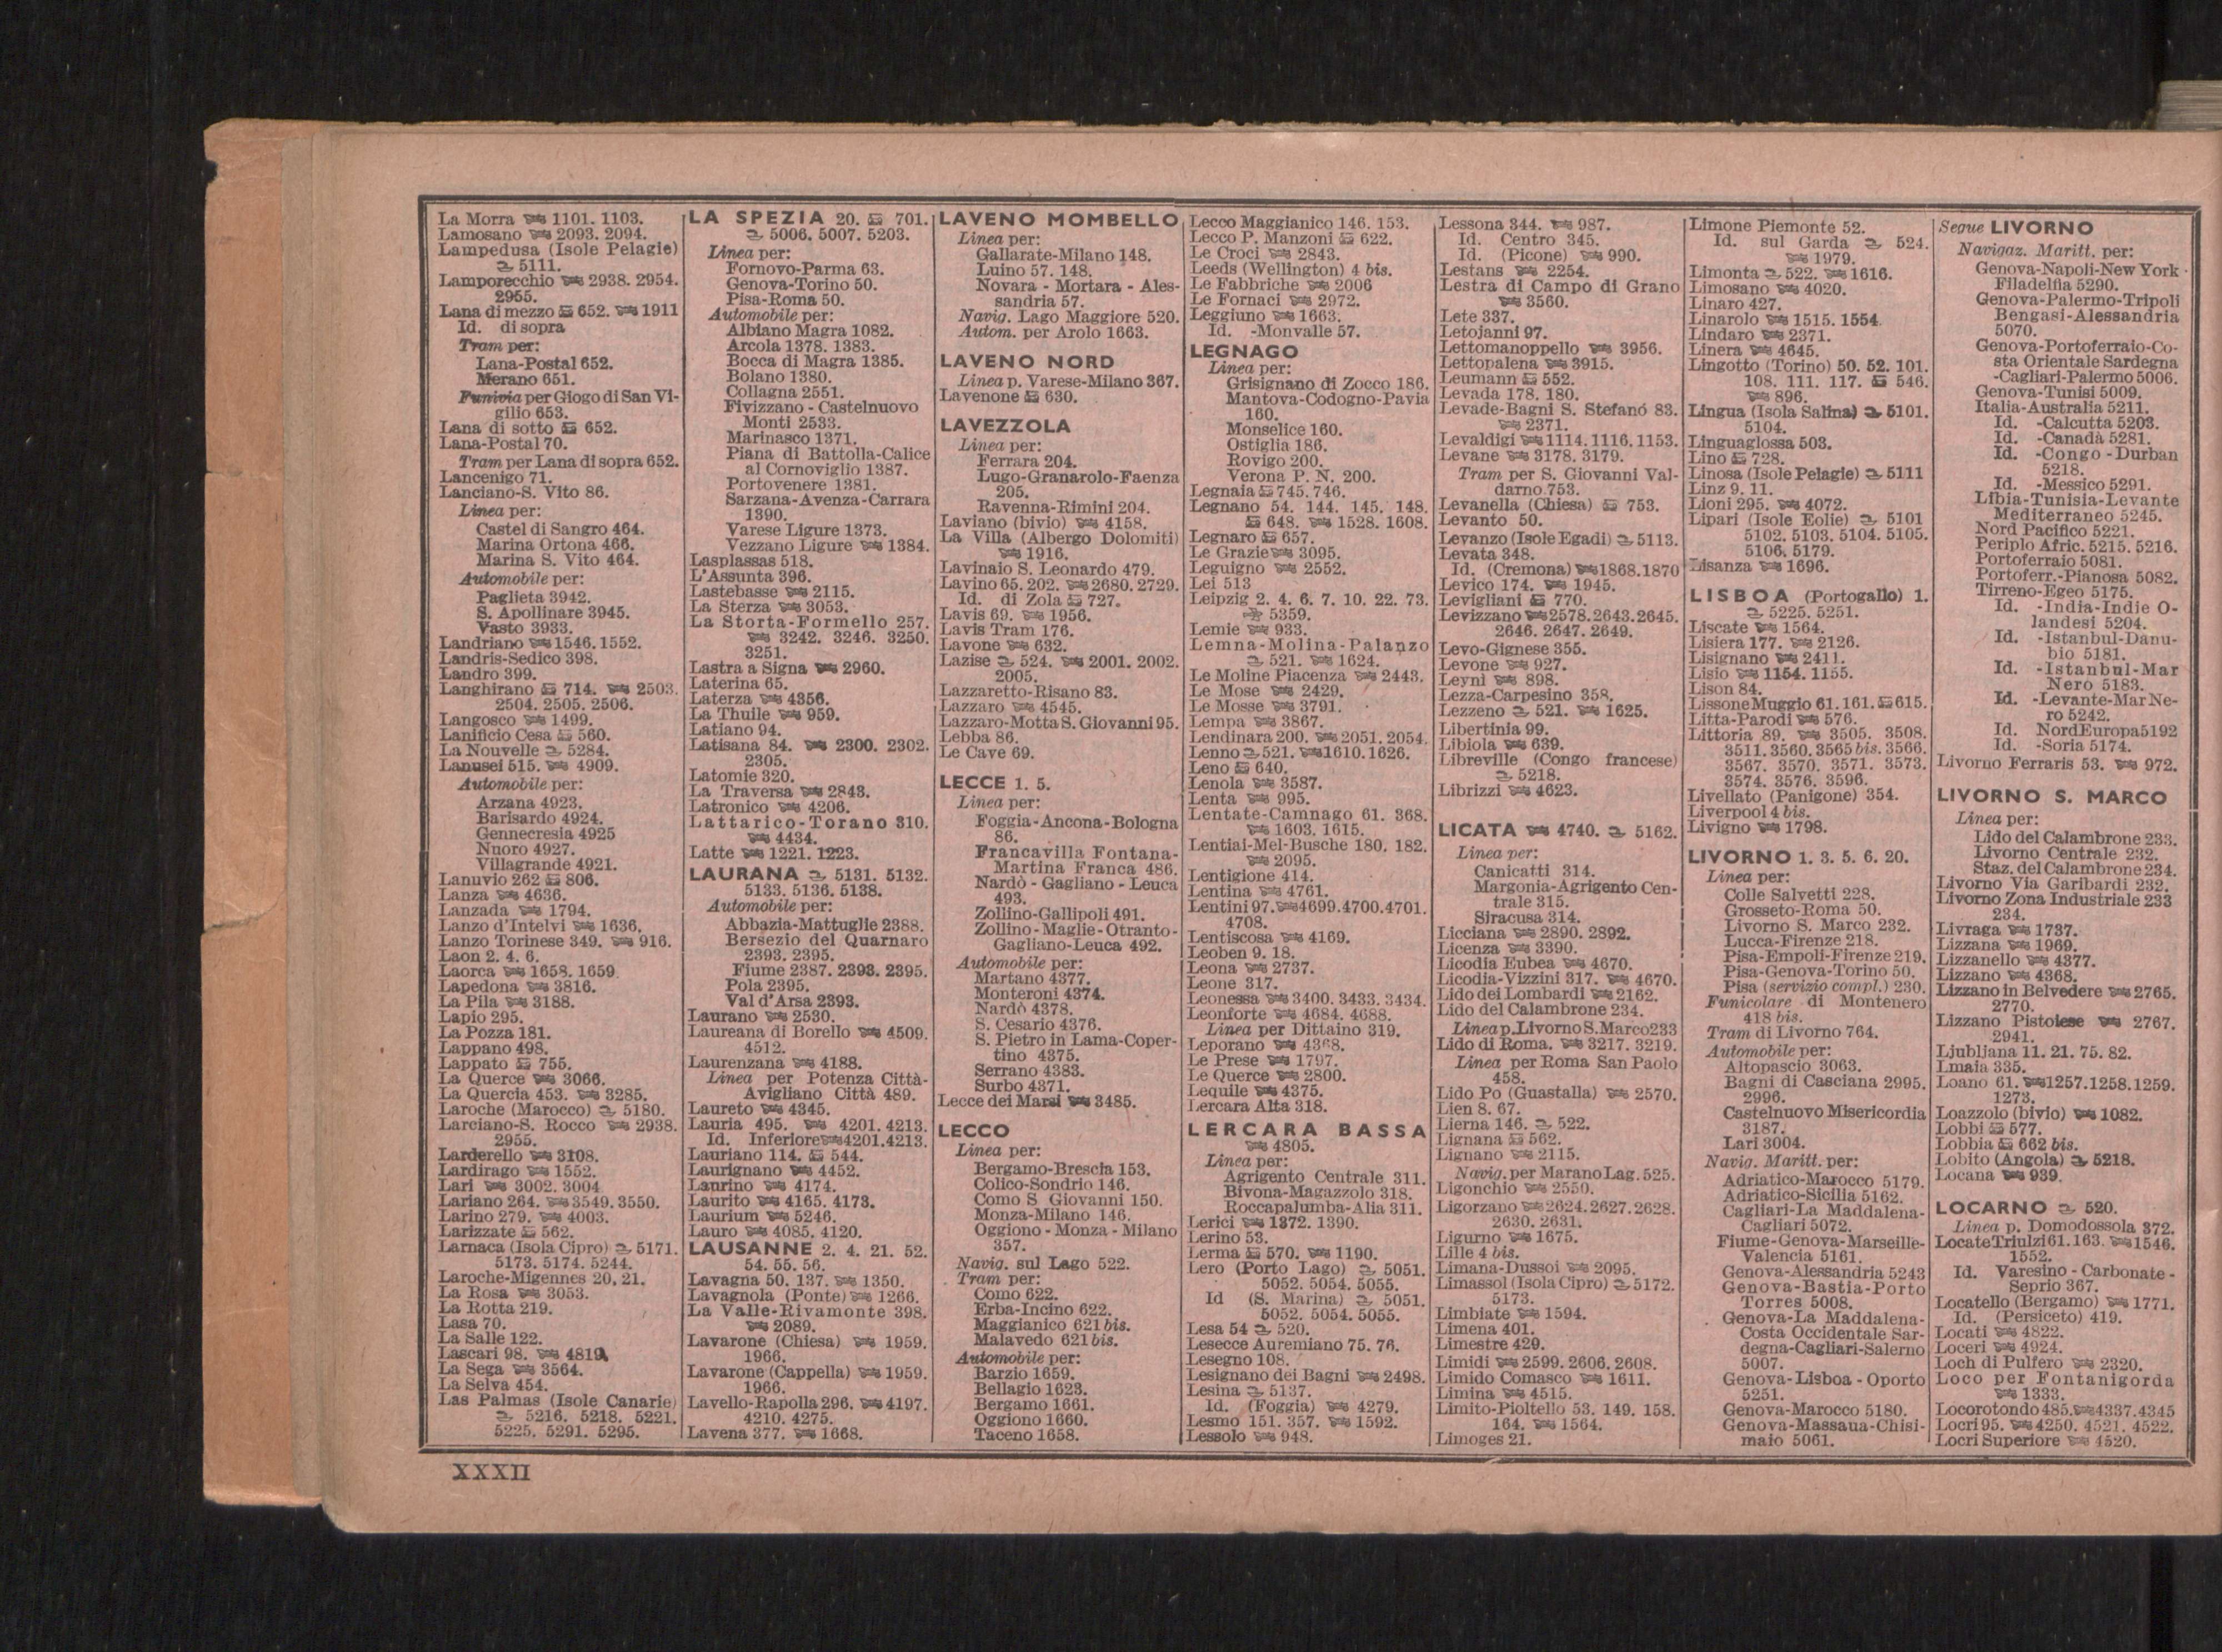 La Morra 1101. 1103.
Lamosano 2093. 2094.
Lampedusa (Isole Pelagie)
5111.
Lamporecchio 2938. 2954.
2955.
Lana di mezzo 652. 1911
Id. di sopra
Tram per:
Lana-Postal 652.
Merano 651.
Funivia per Giogo di San Vi-
gilio 653.
Lana di sotto 652.
Lana-Postal 70.
Tram per Lana di sopra 652.
Lancenigo 71.
Lanciano-S. Vito 86.
Linea per:
Castel di Sangro 464.
Marina Ortona 466.
Marina S. Vito 464.
Automobile per:
Paglieta 3942.
S. Apollinare 3945.
Vasto 3933.
Landriano 1546. 1552.
Landris-Sedico 398.
Landro 399.
Langhirano 714. 2503.
2504. 2505. 2506.
Langosco 1499.
Lanificio Cesa 560.
La Nouvelle 5284.
Lanusei 515. 4909.
Automobile per:
Arzana 4923.
Barisardo 4924.
Gennecresia 4925
Nuoro 4927.
Villagrande 4921.
Lanuvio 262 806.
Lanza 4636.
Lanzada 1794.
Lanzo d'Intelvi 1636.
Lanzo Torinese 349. 916.
Laon 2. 4. 6.
Laorca 1658. 1659.
Lapedona 3816.
La Pila 3188.
Lapio 295.
La Pozza 181.
Lappano 498.
Lappato 755.
La Querce 3066.
La Quercia 453. 3285.
Laroche (Marocco) 5180.
Larciano-S. Rocco 2938.
2955.
Larderello 3108.
Lardirago 1552.
Lari 3002. 3004
Lariano 264. 3549. 3550.
Larino 279. 4003.
Larizzate 562.
Larnaca (Isola Cipro) 5171.
5173. 5174. 5244.
Laroche-Migennes 20. 21.
La Rosa 3053.
La Rotta 219.
Lasa 70.
La Salle 122.
Lascari 98. 4819
La Sega 3564.
La Selva 454.
Las Palmas (Isole Canarie)
5216. 5218. 5221.
5225. 5291. 5295.
LA SPEZIA 20. 701.
5006. 5007. 5203.
Linea per:
Fornovo-Parma 63.
Genova-Torino 50.
Pisa-Roma 50.
Automobile per:
Albiano Magra 1082.
Arcola 1378. 1383.
Bocca di Magra 1385.
Bolano 1380.
Collagna 2551.
Fivizzano - Castelnuovo
Monti 2533.
Marinasco 1371.
Piana di Battolla-Calice
al Cornoviglio 1387.
Portovenere 1381.
Sarzana-Avenza-Carrara
1390.
Varese Ligure 1373.
Vezzano Ligure 1384.
Lasplassas 518.
L'Assunta 396.
Lastebasse 2115.
La Sterza 3053.
La Storta-Formello 257.
3242. 3246. 3250.
3251.
Lastra a Signa 2960.
Laterina 65.
Laterza 4356.
La Thuile 959.
Latiano 94.
Latisana 84. 2300. 2302.
2305.
Latomie 320.
La Traversa 2843.
Latronico 4206.
Lattarico-Torano 310.
4434.
Latte 1221. 1223.
LAURANA 5131. 5132.
5133. 5136. 5138.
Automobile per:
Abbazia-Mattuglie 2388.
Bersezio del Quarnaro
2393. 2395.
Fiume 2387. 2393. 2395.
Pola 2395.
Val d'Arsa 2393.
Laurano 2530.
Laureana di Borello 4509.
4512.
Laurenzana 4188.
Linea per Potenza Città-
Avigliano Città 489.
Laureto 4345.
Lauria 495. 4201. 4213.
Id. Inferiore 4201. 4213.
Lauriano 114. 544.
Laurignano 4452.
Laurino 4174.
Laurito 4165. 4173.
Laurium 5246.
Lauro 4085. 4120.
LAUSANNE 2. 4. 21. 52.
54. 55. 56.
Lavagna 50. 137. 1350.
Lavagnola (Ponte) 1266.
La Valle-Rivamonte 398.
2089.
Lavarone (Chiesa) 1959.
1966.
Lavarone (Cappella) 1959.
1966.
Lavello-Rapolla 296. 4197.
4210. 4275.
Lavena 377. 1668.
LAVENO MOMBELLO
Linea per:
Gallarate-Milano 148.
Luino 57. 148.
Novara - Mortara - Ales-
sandria 57.
Navig. Lago Maggiore 520.
Autom. per Arolo 1663.
LAVENO NORD
Linea p. Varese-Milano 367.
Lavenone 630.
LAVEZZOLA
Linea per:
Ferrara 204.
Lugo-Granarolo-Faenza
205.
Ravenna-Rimini 204.
Laviano (bivio) 4158.
La Villa (Albergo Dolomiti)
1916.
Lavinaio S. Leonardo 479.
Lavino 65. 202. 2680. 2729.
Id. di Zola 727.
Lavis 69. 1956.
Lavis Tram 176.
Lavone 632.
Lazise 524. 2001. 2002.
2005.
Lazzaretto-Risano 83.
Lazzaro 4545.
Lazzaro-Motta S. Giovanni 95.
Lebba 86.
Le Cave 69.
LECCE 1. 5.
Linea per:
Foggia-Ancona-Bologna
86.
Francavilla Fontana-
Martina Franca 486.
Nardò - Gagliano - Leuca
493.
Zollino-Gallipoli 491.
Zollino-Maglie-Otranto-
Gagliano-Leuca 492.
Automobile per:
Martano 4377.
Monteroni 4374.
Nardò 4378.
S. Cesario 4376.
S. Pietro in Lama-Coper-
tino 4375.
Serrano 4383.
Surbo 4371.
Lecce dei Marsi 3485.
LECCO
Linea per:
Bergamo-Brescia 153.
Colico-Sondrio 146.
Como S Giovanni 150.
Monza-Milano 146.
Oggiono - Monza - Milano
357.
Navig. sul Lago 522.
Tram per:
Como 622.
Erba-Incino 622.
Maggianico 621 bis.
Malavedo 621 bis.
Automobile per:
Barzio 1659.
Bellagio 1623.
Bergamo 1661.
Oggiono 1660.
Taceno 1658.
Lecco Maggianico 146. 153.
Lecco P. Manzoni 622.
Le Croci 2843.
Leeds (Wellington) 4 bis.
Le Fabbriche 2006
Le Fornaci 2972.
Leggiuno 1663.
Id. -Monvalle 57.
LEGNAGO
Linea per:
Grisignano di Zocco 186.
Mantova-Codogno-Pavia
160.
Monselice 160.
Ostiglia 186.
Rovigo 200.
Verona P. N. 200.
Legnaia 745. 746.
Legnano 54. 144. 145. 148.
648. 1528. 1608.
Legnaro 657.
Le Grazie 3095.
Leguigno 2552.
Lei 513
Leipzig 2. 4. 6. 7. 10. 22. 73.
5359.
Lemie 933.
Lemna-Molina-Palanzo
521. 1624.
Le Moline Piacenza 2443.
Le Mose 2429.
Le Mosse 3791.
Lempa 3867.
Lendinara 200. 2051. 2054.
Lenno 521. 1610. 1626.
Leno 640.
Lenola 3587.
Lenta 995.
Lentate-Camnago 61. 368.
1603. 1615.
Lentiai-Mel-Busche 180. 182.
2095.
Lentigione 414.
Lentina 4761.
Lentini 97. 4699. 4700. 4701.
4708.
Lentiscosa 4169.
Leoben 9. 18.
Leona 2737.
Leone 317.
Leonessa 3400. 3433. 3434.
Leonforte 4684. 4688.
Linea per Dittaino 319.
Leporano 4368.
Le Prese 1797.
Le Querce 2800.
Lequile 4375.
Lercara Alta 318.
LERCARA BASSA
4805.
Linea per:
Agrigento Centrale 311.
Bivona-Magazzolo 318.
Roccapalumba-Alia 311.
Lerici 1372. 1390.
Lerino 53.
Lerma 570. 1190.
Lero (Porto Lago) 5051.
5052. 5054. 5055.
Id (S. Marina) 5051.
5052. 5054. 5055.
Lesa 54 520.
Lesecce Auremiano 75. 76.
Lesegno 108.
Lesignano dei Bagni 2498.
Lesina 5137.
Id. (Foggia) 4279.
Lesmo 151. 357. 1592.
Lessolo 948.
Lessona 344. 987.
Id. Centro 345.
Id. (Picone) 990.
Lestans 2254.
Lestra di Campo di Grano
3560.
Lete 337.
Letojanni 97.
Lettomanoppello 3956.
Lettopalena 3915.
Leumann 552.
Levada 178. 180.
Levade-Bagni S. Stefano 83.
2371.
Levaldigi 1114. 1116. 1153.
Levane 3178. 3179.
Tram per S. Giovanni Val-
darno 753.
Levanella (Chiesa) 753.
Levanto 50.
Levanzo (Isole Egadi) 5113.
Levata 348.
Id. (Cremona) 1868. 1870
Levico 174. 1945.
Levigliani 770.
Levizzano 2578. 2643. 2645.
2646. 2647. 2649.
Levo-Gignese 355.
Levone 927.
Leynì 898.
Lezza-Carpesino 358.
Lezzeno 521. 1625.
Libertinia 99.
Libiola 639.
Libreville (Congo francese)
5218.
Librizzi 4623.
LICATA 4740. 5162.
Linea per:
Canicatti 314.
Margonia-Agrigento Cen-
trale 315.
Siracusa 314.
Licciana 2890. 2892.
Licenza 3390.
Licodia Eubea 4670.
Licodia-Vizzini 317. 4670.
Lido dei Lombardi 2162.
Lido del Calambrone 234.
Linea p. Livorno S. Marco 233
Lido di Roma. 3217. 3219.
Linea per Roma San Paolo
458.
Lido Po (Guastalla) 2570.
Lien 8. 67.
Lierna 146. 522.
Lignana 562.
Lignano 2115.
Navig. per Marano Lag. 525.
Ligonchio 2550.
Ligorzano 2624. 2627. 2628.
2630. 2631.
Ligurno 1675.
Lille 4 bis.
Limana-Dussoi 2095.
Limassol (Isola Cipro) 5172.
5173.
Limbiate 1594.
Limena 401.
Limestre 429.
Limidi 2599. 2606. 2608.
Limido Comasco 1611.
Limina 4515.
Limito-Pioltello 53. 149. 158.
164. 1564.
Limoges 21.
Limone Piemonte 52.
Id. sul Garda 524.
1979.
Limonta 522. 1616.
Limosano 4020.
Linaro 427.
Linarolo 1515. 1554.
Lindaro 2371.
Linera 4645.
Lingotto (Torino) 50. 52. 101.
108. 111. 117. 546.
896.
Lingua (Isola Salina) 5101.
5104.
Linguaglossa 503.
Lino 728.
Linosa (Isole Pelagie) 5111
Linz 9. 11.
Lioni 295. 4072.
Lipari (Isole Eolie) 5101
5102. 5103. 5104. 5105.
5106. 5179.
Lisanza 1696.
LISBOA (Portogallo) 1.
5225. 5251.
Liscate 1564.
Lisiera 177. 2126.
Lisignano 2411.
Lisio 1154. 1155.
Lison 84.
Lissone Muggio 61. 161. 615.
Litta-Parodi 576.
Littoria 89. 3505. 3508.
3511. 3560. 3565 bis. 3566.
3567. 3570. 3571. 3573.
3574. 3576. 3596.
Livellato (Panigone) 354.
Liverpool 4 bis.
Livigno 1798.
LIVORNO 1. 3. 5. 6. 20.
Linea per:
Colle Salvetti 228.
Grosseto-Roma 50.
Livorno S. Marco 232.
Lucca-Firenze 218.
Pisa-Empoli-Firenze 219.
Pisa-Genova-Torino 50.
Pisa (servizio compl.) 230.
Funicolare di Montenero
418 bis.
Tram di Livorno 764.
Automobile per:
Altopascio 3063.
Bagni di Casciana 2995.
2996.
Castelnuovo Misericordia
3187.
Lari 3004.
Navig. Maritt. per:
Adriatico-Marocco 5179.
Adriatico-Sicilia 5162.
Cagliari-La Maddalena-
Cagliari 5072.
Fiume-Genova-Marseille-
Valencia 5161.
Genova-Alessandria 5243
Genova-Bastia-Porto
Torres 5008.
Genova-La Maddalena-
Costa Occidentale Sar-
degna-Cagliari-Salerno
5007.
Genova-Lisboa - Oporto
5251.
Genova-Marocco 5180.
Genova-Massaua-Chisi-
maio 5061.
Segue LIVORNO
Navigaz. Maritt. per:
Genova-Napoli-New York -
Filadelfia 5290.
Genova-Palermo-Tripoli
Bengasi-Alessandria
5070.
Genova-Portoferraio-Co-
sta Orientale Sardegna
-Cagliari-Palermo 5006.
Genova-Tunisi 5009.
Italia-Australia 5211.
Id. -Calcutta 5203.
Id. -Canadà 5281.
Id. -Congo - Durban
5218.
Id. -Messico 5291.
Libia-Tunisia-Levante
Mediterraneo 5245.
Nord Pacifico 5221.
Periplo Afric. 5215. 5216.
Portoferraio 5081.
Portoferr.-Pianosa 5082.
Tirreno-Egeo 5175.
Id. -India-Indie O-
landesi 5204.
Id. -Istanbul-Danu-
bio 5181.
Id. -Istanbul-Mar
Nero 5183.
Id. -Levante-Mar Ne-
ro 5242.
Id. Nord Europa 5192
Id. -Soria 5174.
Livorno Ferraris 53. 972.
LIVORNO S. MARCO
Linea per:
Lido del Calambrone 233.
Livorno Centrale 232.
Staz. del Calambrone 234.
Livorno Via Garibardi 232.
Livorno Zona Industriale 233
234.
Livraga 1737.
Lizzana 1969.
Lizzanello 4377.
Lizzano 4368.
Lizzano in Belvedere 2765.
2770.
Lizzano Pistoiese 2767.
2941.
Ljubljana 11. 21. 75. 82.
Lmaia 335.
Loano 61. 1257. 1258. 1259.
1273.
Loazzolo (bivio) 1082.
Lobbi 577.
Lobbia 662 bis.
Lobito (Angola) 5218.
Locana 939.
LOCARNO 520.
Linea p. Domodossola 372.
Locate Triulzi 61. 163. 1546.
1552.
Id. Varesino - Carbonate -
Seprio 367.
Locatello (Bergamo) 1771.
Id. (Persiceto) 419.
Locati 4822.
Loceri 4924.
Loch di Pulfero 2320.
Loco per Fontanigorda
1333.
Locorotondo 485. 4337. 4345
Locri 95. 4250. 4521. 4522.
Locri Superiore 4520.
XXXII